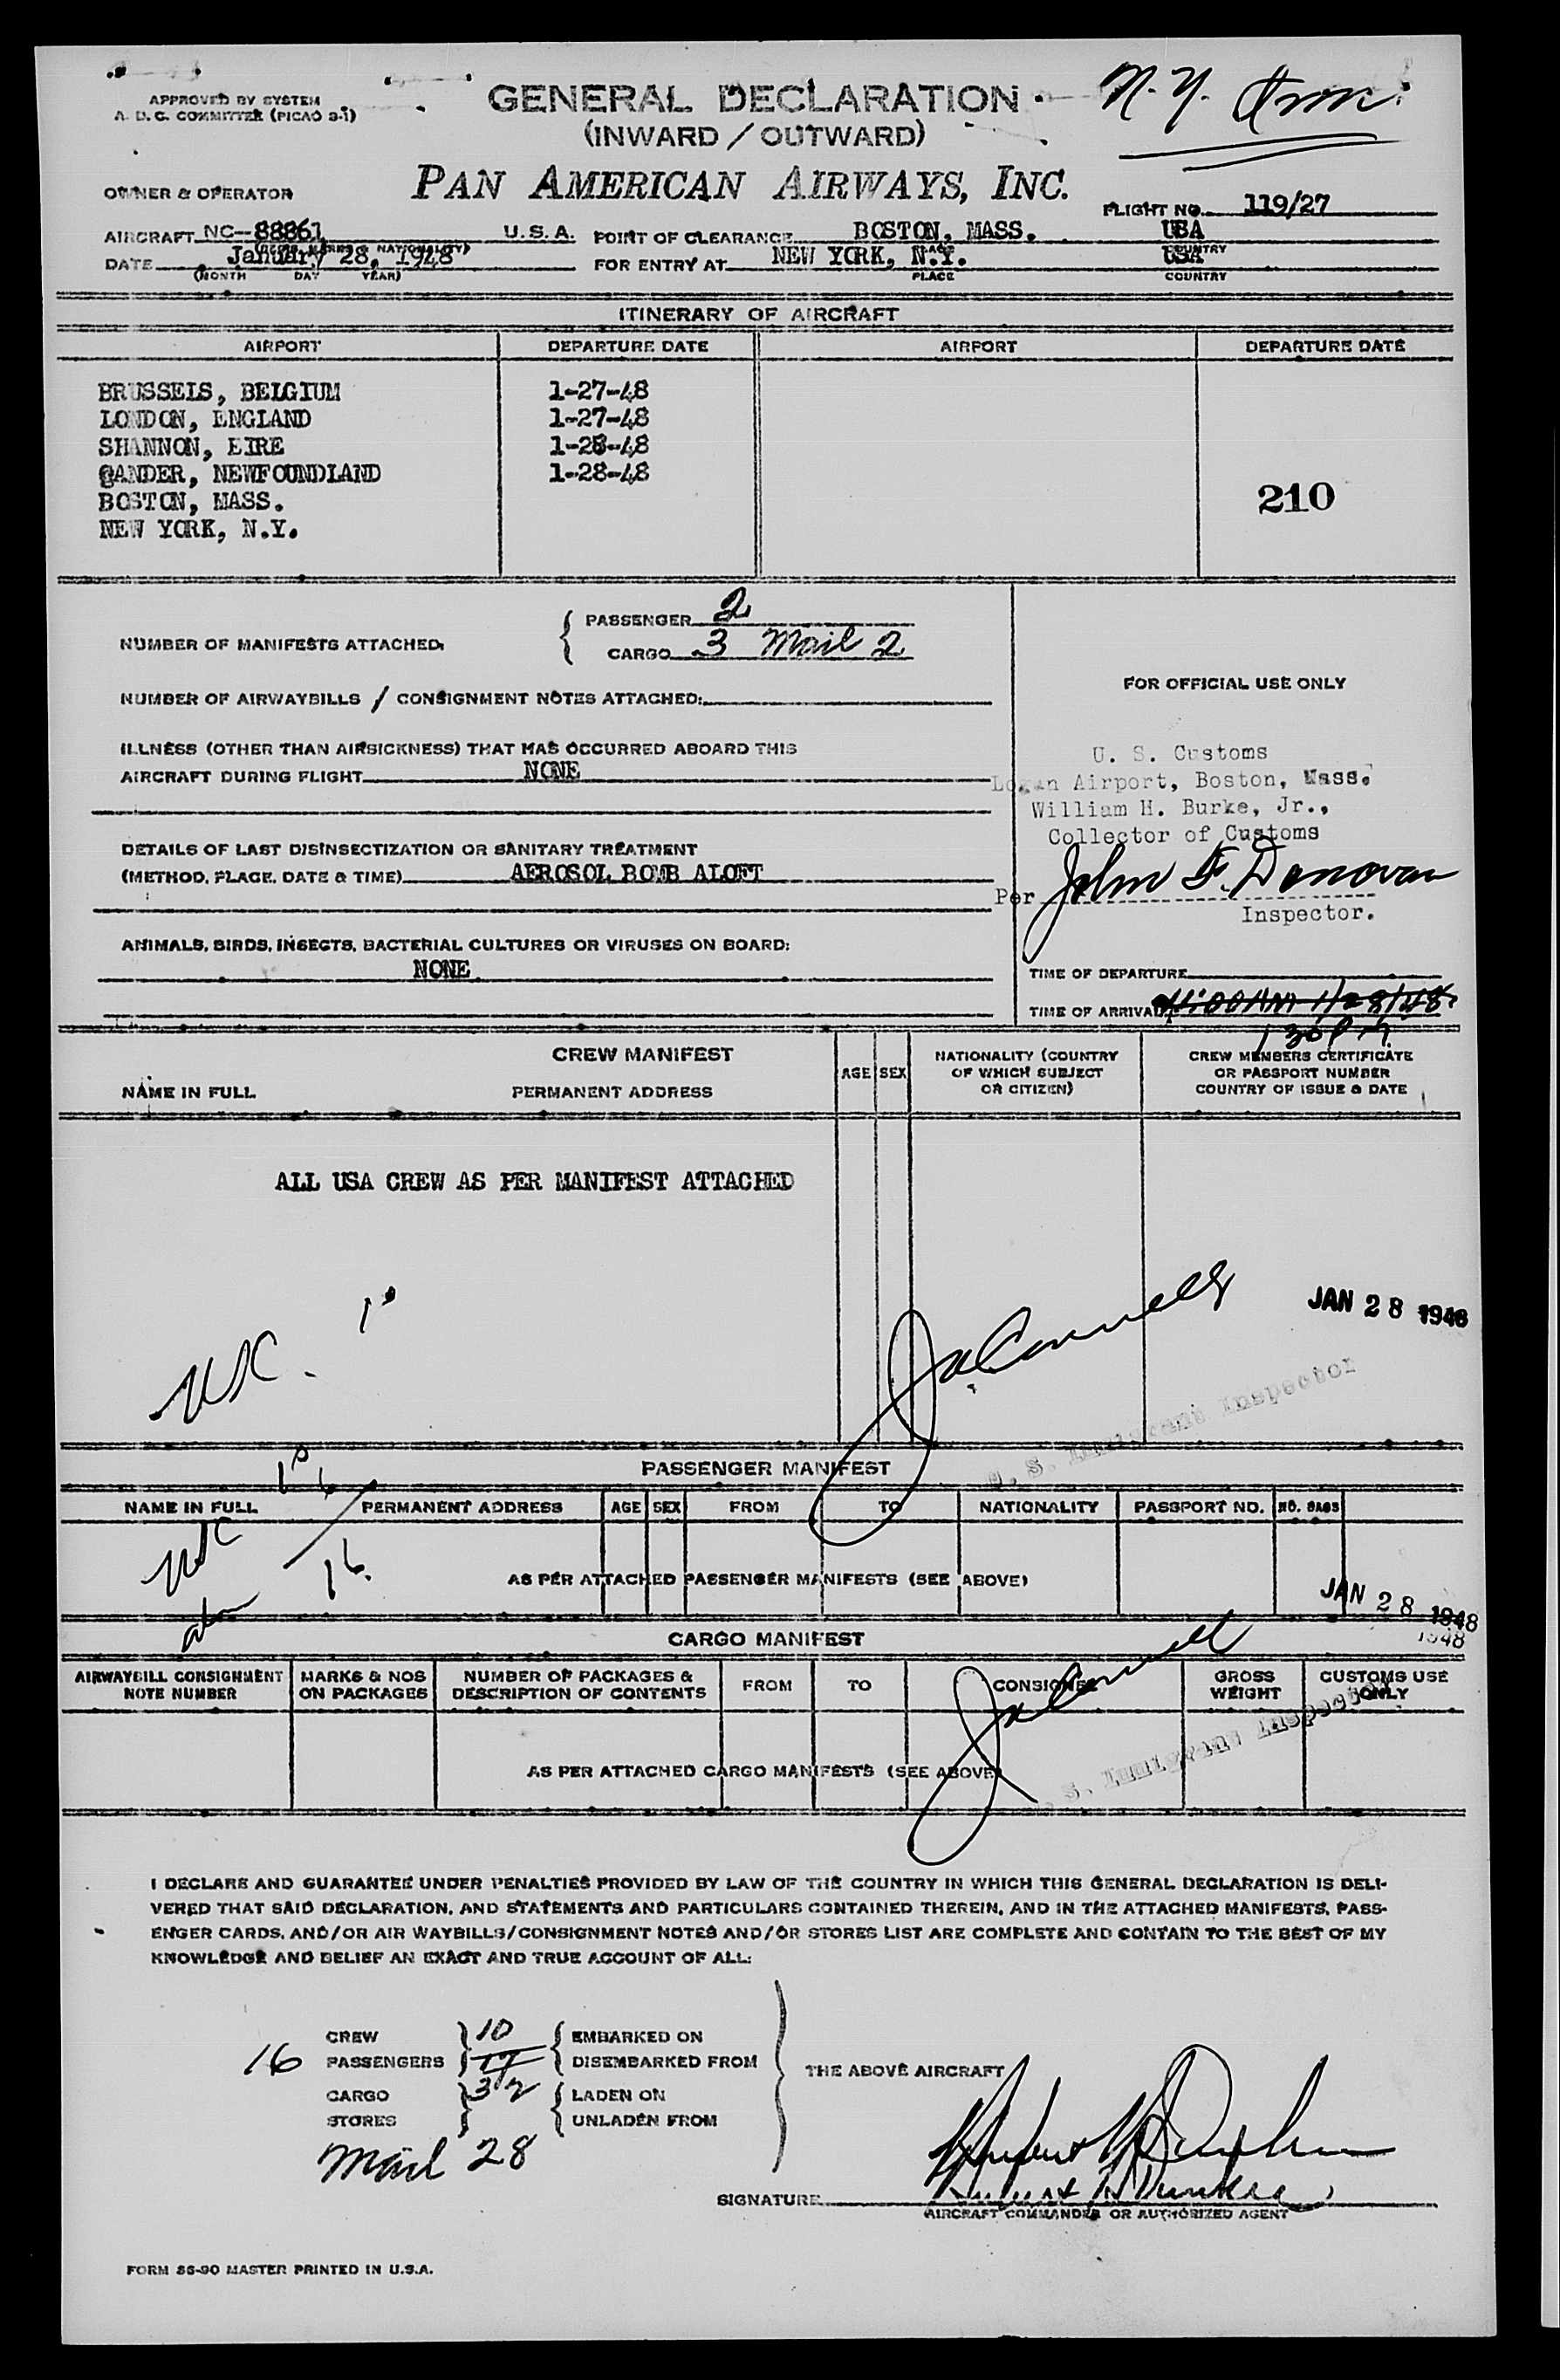 APPROVED BY SYSTEM
A. D. C. COMMITTEE (PICAO 3-1)
GENERAL DECLARATION
(INWARD / OUTWARD)
N.Y.
OWNER & OPERATOR
PAN AMERICAN AIRWAYS, INC.
FLIGHT NO. 119/27
AIRCRAFT NC-88861 U.S.A. POINT OF CLEARANCE BOSTON, MASS. USA
DATE January 28, 1948 FOR ENTRY AT NEW YORK, N.Y. USA
(MONTH DAY YEAR) PLACE COUNTRY
ITINERARY OF AIRCRAFT
AIRPORT DEPARTURE DATE AIRPORT DEPARTURE DATE
BRUSSELS, BELGIUM 1-27-48
LONDON, ENGLAND 1-27-48
SHANNON, EIRE 1-28-48
GANDER, NEWFOUNDLAND 1-28-48
BOSTON, MASS. 210
NEW YORK, N.Y.
NUMBER OF MANIFESTS ATTACHED. { PASSENGER 2
CARGO 3 Mail 2
NUMBER OF AIRWAYBILLS / CONSIGNMENT NOTES ATTACHED:
FOR OFFICIAL USE ONLY
ILLNESS (OTHER THAN AIRSICKNESS) THAT HAS OCCURRED ABOARD THIS
AIRCRAFT DURING FLIGHT NONE
U. S. Customs
Logan Airport, Boston, Mass.
William H. Burke, Jr.,
Collector of Customs
DETAILS OF LAST DISINSECTIZATION OR SANITARY TREATMENT
(METHOD, PLACE, DATE & TIME) AEROSOL BOMB ALOFT
Per John F. Donovan
Inspector.
ANIMALS, BIRDS, INSECTS, BACTERIAL CULTURES OR VIRUSES ON BOARD:
NONE
TIME OF DEPARTURE
TIME OF ARRIVAL 11:00AM 1/28/48
130PM
CREW MANIFEST
NAME IN FULL PERMANENT ADDRESS AGE SEX NATIONALITY (COUNTRY OF WHICH SUBJECT OR CITIZEN) CREW MEMBERS CERTIFICATE OR PASSPORT NUMBER COUNTRY OF ISSUE & DATE
ALL USA CREW AS PER MANIFEST ATTACHED
JAN 28 1948
U. S. Immigrant Inspector
PASSENGER MANIFEST
NAME IN FULL PERMANENT ADDRESS AGE SEX FROM TO NATIONALITY PASSPORT NO. NO. BAGS
16
AS PER ATTACHED PASSENGER MANIFESTS (SEE ABOVE)
JAN 28 1948
1948
CARGO MANIFEST
AIRWAYBILL CONSIGNMENT NOTE NUMBER MARKS & NOS ON PACKAGES NUMBER OF PACKAGES & DESCRIPTION OF CONTENTS FROM TO CONSIGNEE GROSS WEIGHT CUSTOMS USE ONLY
AS PER ATTACHED CARGO MANIFESTS (SEE ABOVE)
S. Immigrant Inspector
I DECLARE AND GUARANTEE UNDER PENALTIES PROVIDED BY LAW OF THE COUNTRY IN WHICH THIS GENERAL DECLARATION IS DELI-
VERED THAT SAID DECLARATION, AND STATEMENTS AND PARTICULARS CONTAINED THEREIN, AND IN THE ATTACHED MANIFESTS, PASS-
ENGER CARDS, AND/OR AIR WAYBILLS/CONSIGNMENT NOTES AND/OR STORES LIST ARE COMPLETE AND CONTAIN TO THE BEST OF MY
KNOWLEDGE AND BELIEF AN EXACT AND TRUE ACCOUNT OF ALL:
CREW 10 EMBARKED ON
16 PASSENGERS 17 DISEMBARKED FROM
THE ABOVE AIRCRAFT
CARGO 32 LADEN ON
STORES UNLADEN FROM
Mail 28
SIGNATURE
AIRCRAFT COMMANDER OR AUTHORIZED AGENT
FORM 56-90 MASTER PRINTED IN U.S.A.